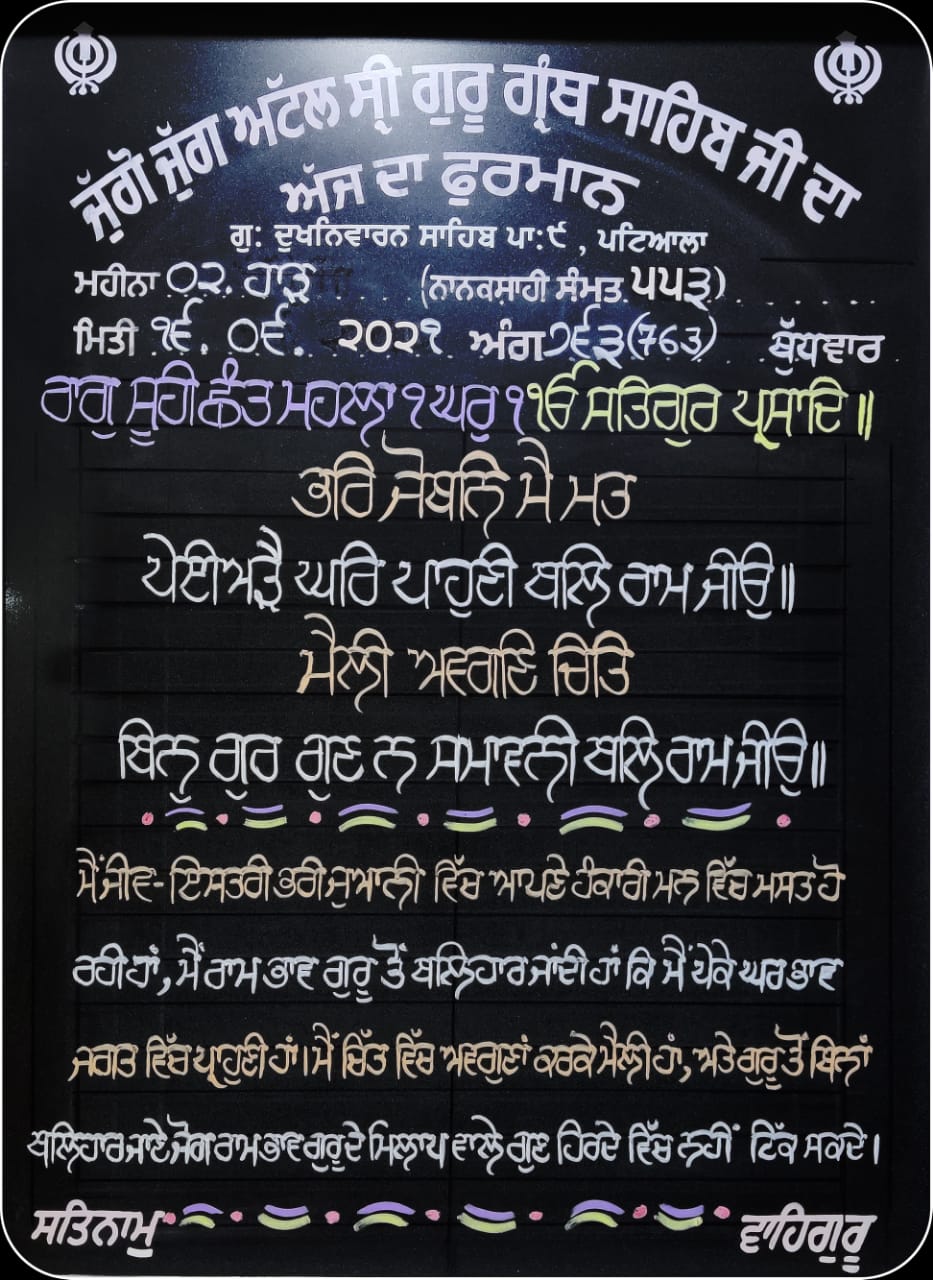 ਜੁੱਗੋ ਜੁੱਗ ਅਟੱਲ ਸ੍ਰੀ ਗੁਰੂ ਗ੍ਰੰਥ ਸਾਹਿਬ ਜੀ ਦਾ
ਅੱਜ ਦਾ ਫੁਰਮਾਨ
ਗੁ: ਦੁਖਨਿਵਾਰਨ ਸਾਹਿਬ ਪਾ:੯ , ਪਟਿਆਲਾ
ਮਹੀਨਾ ੦੨. ਹਾੜ (ਨਾਨਕਸ਼ਾਹੀ ਸੰਮਤ ੫੫੩)
ਮਿਤੀ ੧੬. ੦੬. ੨੦੨੧ ਅੰਗ ੭੬੩(763) ਬੁੱਧਵਾਰ
ਰਾਗੁ ਸੂਹੀ ਛੰਤ ਮਹਲਾ ੧ ਘਰੁ ੧ ੴ ਸਤਿਗੁਰ ਪ੍ਰਸਾਦਿ ॥
ਭਰਿ ਜੋਬਨਿ ਮੈ ਮਤ
ਪੇਈਅੜੈ ਘਰਿ ਪਾਹੁਣੀ ਬਲਿ ਰਾਮ ਜੀਉ॥
ਮੈਲੀ ਅਵਗਣਿ ਚਿਤਿ
ਬਿਨੁ ਗੁਰ ਗੁਣ ਨ ਸਮਾਵਨੀ ਬਲਿ ਰਾਮ ਜੀਉ॥
ਮੈਂ ਜੀਵ-ਇਸਤਰੀ ਭਰੀ ਜੁਆਨੀ ਵਿੱਚ ਆਪਣੇ ਹੰਕਾਰੀ ਮਨ ਵਿੱਚ ਮਸਤ ਹੋ
ਰਹੀ ਹਾਂ, ਮੈਂ ਰਾਮ ਭਾਵ ਗੁਰੂ ਤੋਂ ਬਲਿਹਾਰ ਜਾਂਦੀ ਹਾਂ ਕਿ ਮੈਂ ਪੇਕੇ ਘਰ ਭਾਵ
ਜਗਤ ਵਿੱਚ ਪ੍ਰਾਹੁਣੀ ਹਾਂ। ਮੈਂ ਚਿੱਤ ਵਿੱਚ ਅਵਗੁਣਾਂ ਕਰਕੇ ਮੈਲੀ ਹਾਂ, ਅਤੇ ਗੁਰੂ ਤੋਂ ਬਿਨਾਂ
ਬਲਿਹਾਰ ਜਾਣੇ ਜੋਗ ਰਾਮ ਭਾਵ ਗੁਰੂ ਦੇ ਮਿਲਾਪ ਵਾਲੇ ਗੁਣ ਹਿਰਦੇ ਵਿੱਚ ਨਹੀਂ ਟਿੱਕ ਸਕਦੇ।
ਸਤਿਨਾਮੁ ਵਾਹਿਗੁਰੂ